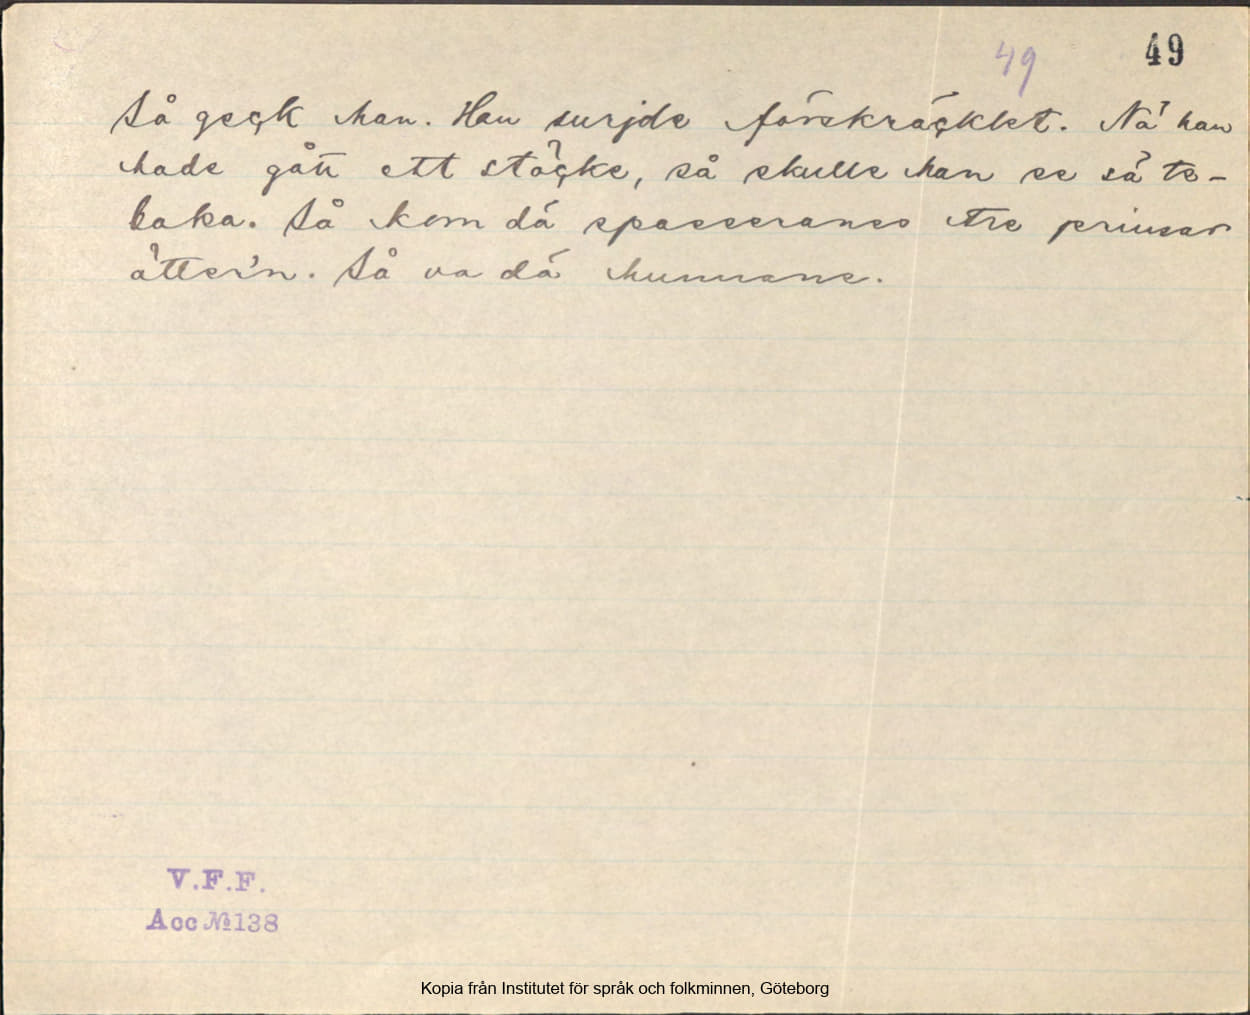 49
49
Så geçk han. Han surjde förskräçklet. Nä han
hade gått ett stöçke, så skulle han se sä te-
baka. Så kom dä spasseranes tre prinsar
ätter'n. Så va dä hunnane.
V.F.F.
Acc № 138
Kopia från Institutet för språk och folkminnen, Göteborg